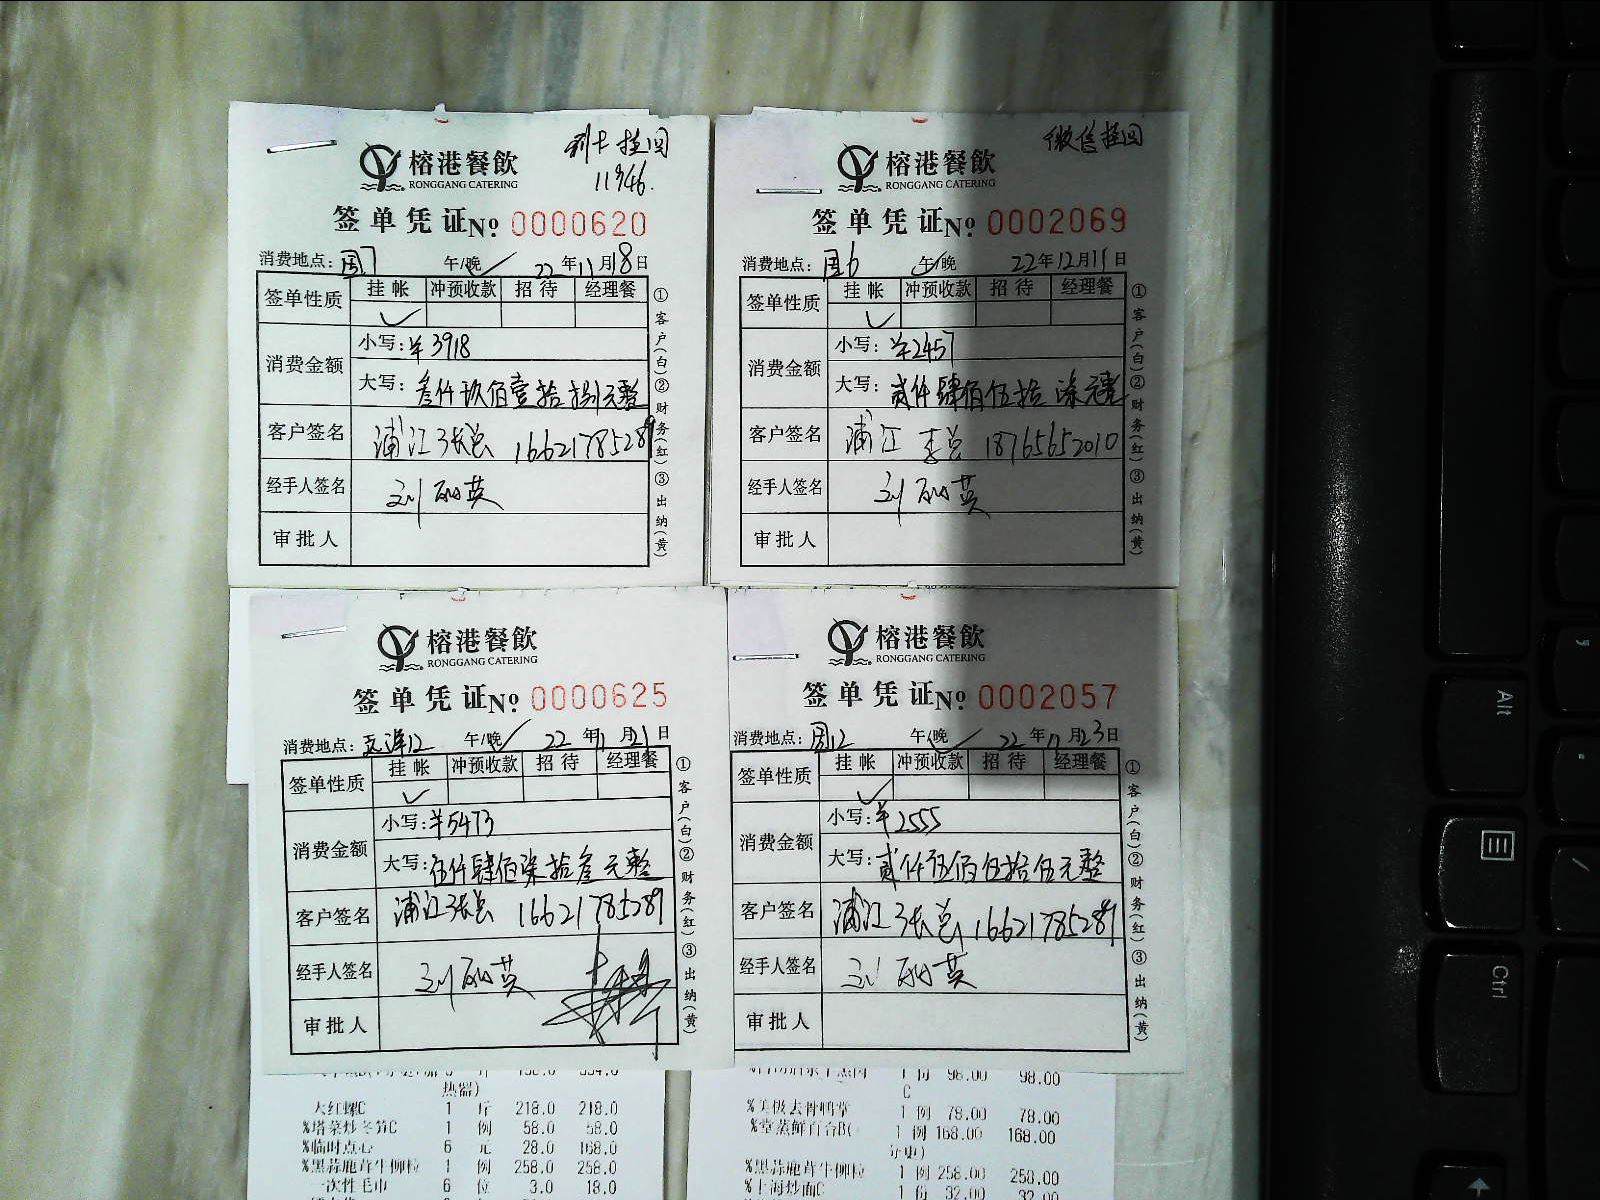 刷卡挂回
11946.
榕港餐飲
RONGGANG CATERING
签单凭证No 0000620
消费地点: 周7 午/晚 22年11月18日
签单性质 挂帐 冲预收款 招待 经理餐
消费金额 小写: ¥3918
大写: 叁仟玖佰壹拾捌元整
客户签名 浦江张总 16621785289
经手人签名 刘
审批人
①客户(白)②财务(红)③出纳(黄)
微信挂回
榕港餐飲
RONGGANG CATERING
签单凭证No 0002069
消费地点: 周6 午/晚 22年12月11日
签单性质 挂帐 冲预收款 招待 经理餐
消费金额 小写: ¥2457
大写: 贰仟肆佰伍拾柒元整
客户签名 浦江 李总 18765652010
经手人签名 刘
审批人
①客户(白)②财务(红)③出纳(黄)
榕港餐飲
RONGGANG CATERING
签单凭证No 0000625
消费地点: 洋12 午/晚 22年11月21日
签单性质 挂帐 冲预收款 招待 经理餐
消费金额 小写: ¥5473
大写: 伍仟肆佰柒拾叁元整
客户签名 浦江张总 16621785289
经手人签名 刘
审批人
①客户(白)②财务(红)③出纳(黄)
榕港餐飲
RONGGANG CATERING
签单凭证No 0002057
消费地点: 周12 午/晚 22年11月23日
签单性质 挂帐 冲预收款 招待 经理餐
消费金额 小写: ¥2555
大写: 贰仟伍佰伍拾伍元整
客户签名 浦江张总 16621785289
经手人签名 刘
审批人
①客户(白)②财务(红)③出纳(黄)
热器)
大红螺C 1 斤 218.0 218.0
%塔菜炒冬笋C 1 例 58.0 58.0
%临时点心 6 元 28.0 168.0
%黑蒜鹿茸牛柳粒 1 例 258.0 258.0
一次性毛巾 6 位 3.0 18.0
1 份 98.00 98.00
C
%美极去骨鸭掌 1 例 78.00 78.00
%堂蒸鲜百合B( 1 例 168.00 168.00
%黑蒜鹿茸牛柳粒 1 例 258.00 258.00
%上海炒面C 1 份 32.00 32.00
Alt
Ctrl